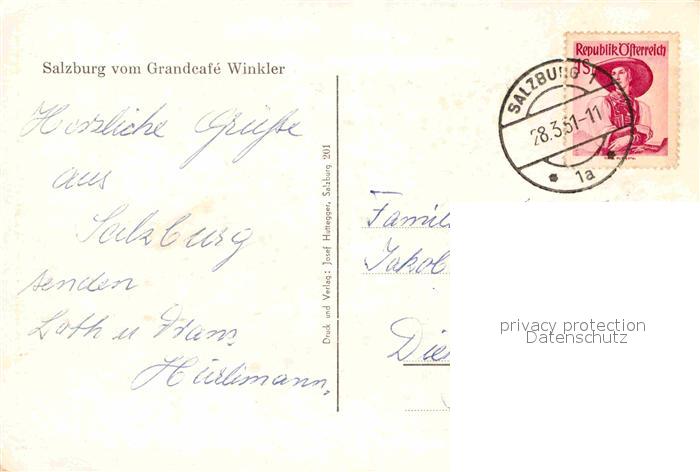 Salzburg vom Grandcafé Winkler
Herzliche Grüße
aus
Salzburg
senden
u
Hürlimann,
Druck und Verlag: Josef Huttegger, Salzburg 201
Republik Österreich
1S
SALZBURG 1
28.3.51-11
* 1a *
Famil
Jakob
Die
privacy protection
Datenschutz